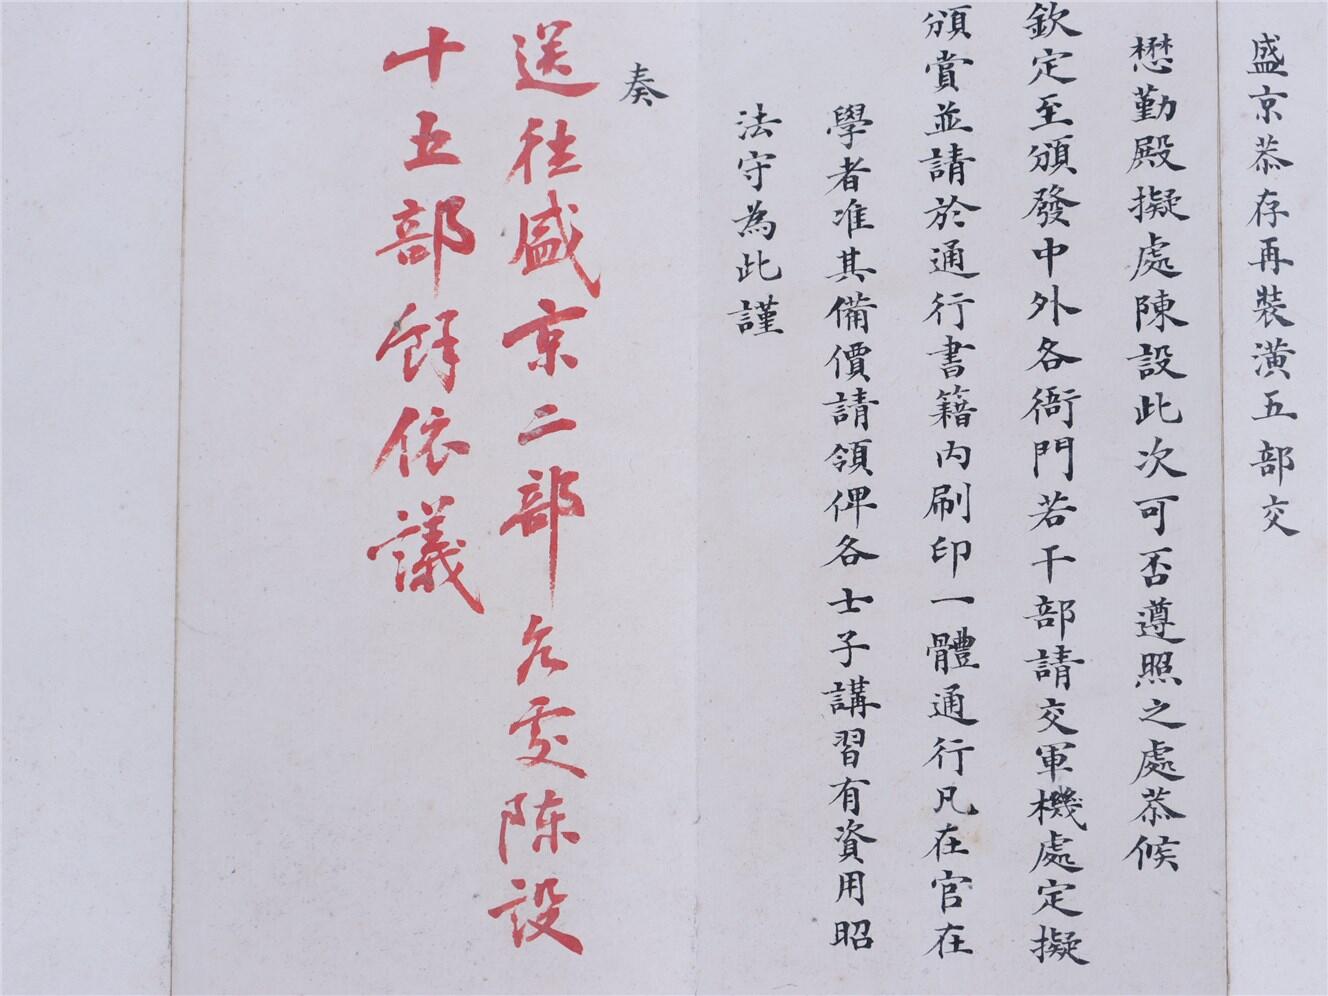 盛京恭存再裝潢五部交
懋勤殿擬處陳設此次可否遵照之處恭候
欽定至頒發中外各衙門若干部請交軍機處定擬
頒賞並請於通行書籍內刷印一體通行凡在官在
學者准其備價請領俾各士子講習有資用昭
法守為此謹
奏
送往盛京二部各處陈设
十五部餘依議